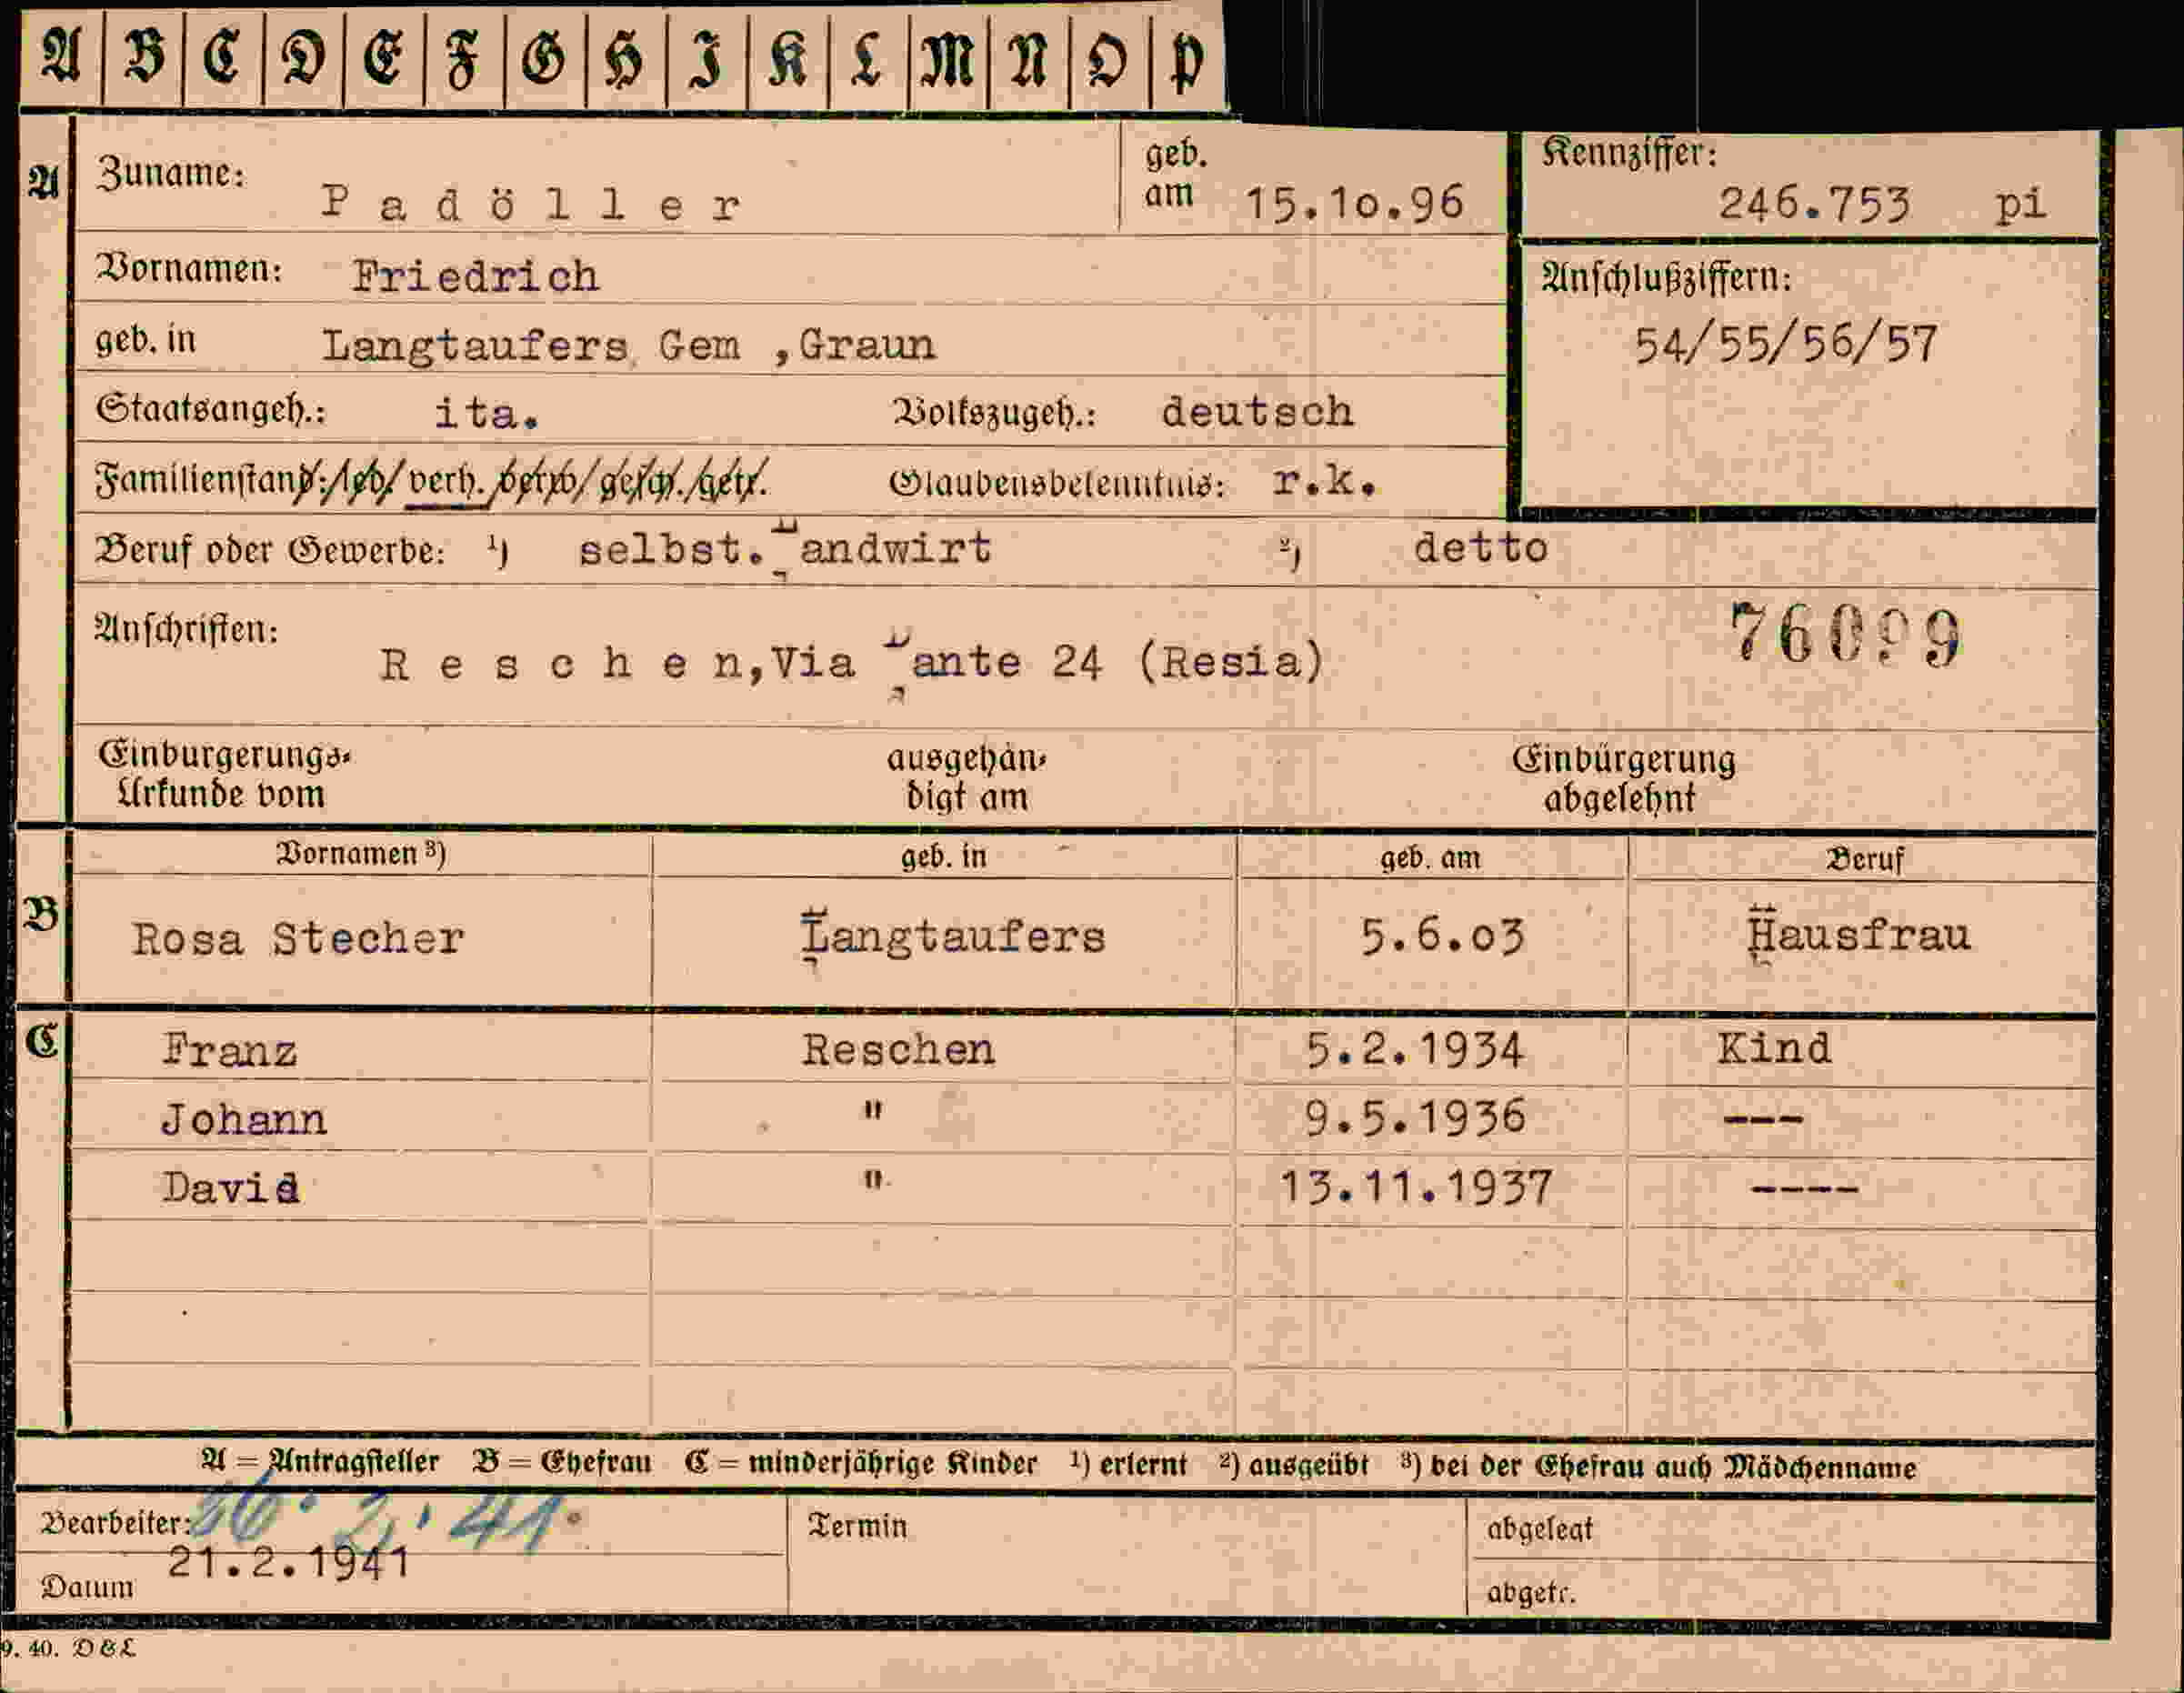 A B C D E F G H I K L M N O P
A Zuname: Padöller geb. am 15.10.96 Kennziffer: 246.753 pi
Vornamen: Friedrich Anschlußziffern:
geb. in Langtaufers Gem ,Graun 54/55/56/57
Staatsangeh.: ita. Volkszugeh.: deutsch
Familienstand: led/ verh. /verw/ gesch./getr. Glaubensbekenntnis: r.k.
Beruf oder Gewerbe: ¹) selbst. Landwirt ²) detto
Anschriften: Reschen,Via Dante 24 (Resia)
Einbürgerungs-Urkunde vom ausgehändigt am Einbürgerung abgelehnt
Vornamen ³) geb. in geb. am Beruf
B Rosa Stecher Langtaufers 5.6.03 Hausfrau
C Franz Reschen 5.2.1934 Kind
Johann " 9.5.1936 ---
David " 13.11.1937 ----
A = Antragsteller B = Ehefrau C = minderjährige Kinder ¹) erlernt ²) ausgeübt ³) bei der Ehefrau auch Mädchenname
Bearbeiter: Termin abgelegt
21.2.1941
Datum abgetr.
9. 40. D&L